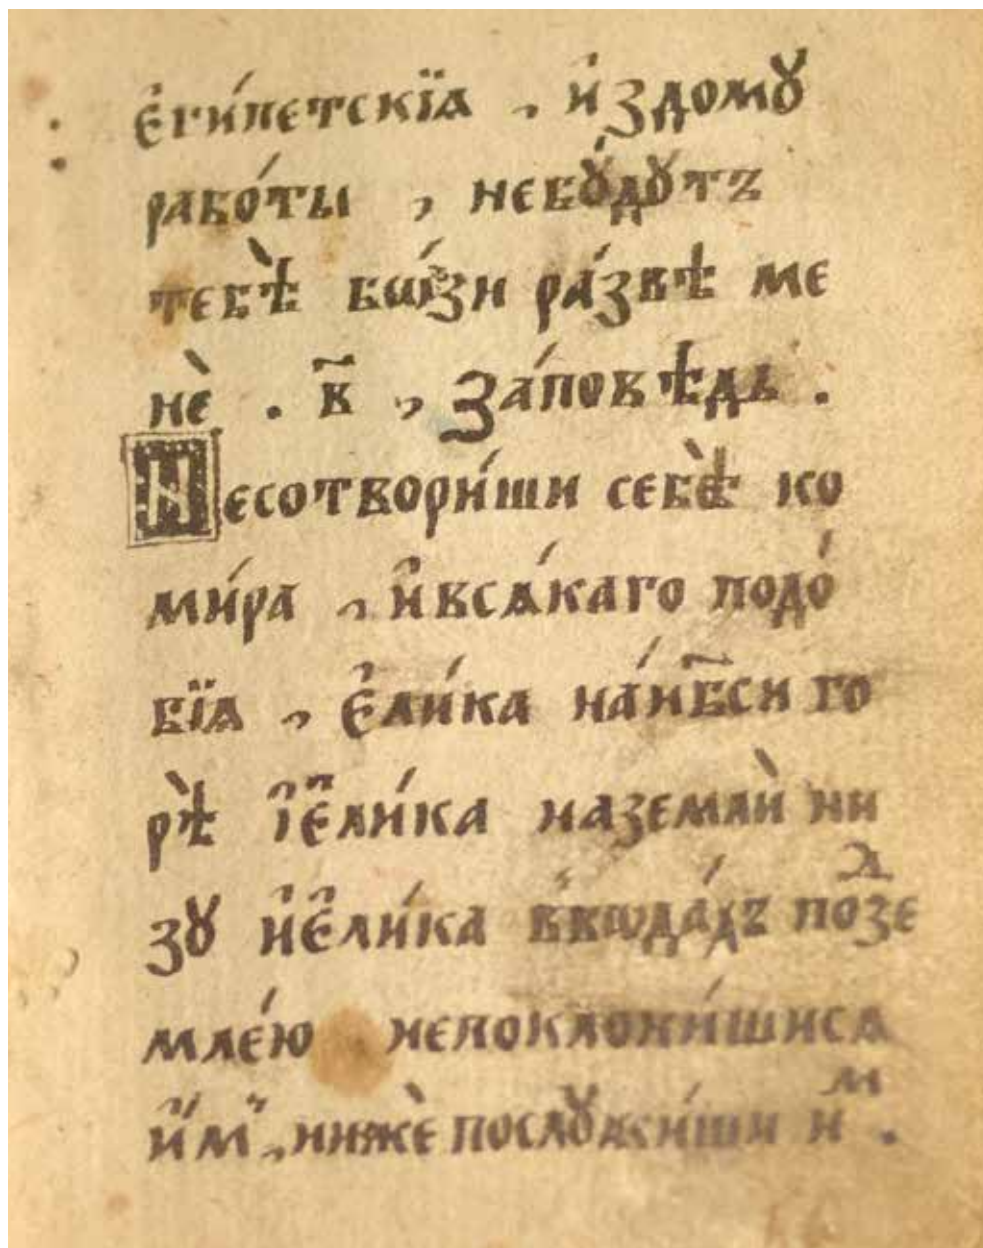 є҆ги́петскїѧ , и҆здомꙋ
рабо́ты , небꙋ́дꙋтъ
тебѣ̀ бѡ́зи ра́звѣ ме
нѐ . в҃ , За́повѣдь .
Несотвори́ши себѣ̀ ко
ми́ра , и҆всѧ́каго подо́
бїѧ , є҆ли́ка на́нб҃си го
рѣ̀ і҆є҆ли́ка наземлѝ ни
зꙋ и҆є҆ли́ка в҆вѡда́хъ поⷣзе
мле́ю непоклони́шисѧ
и҆́мъ , нижѐ послꙋжи́ши иⷨ .